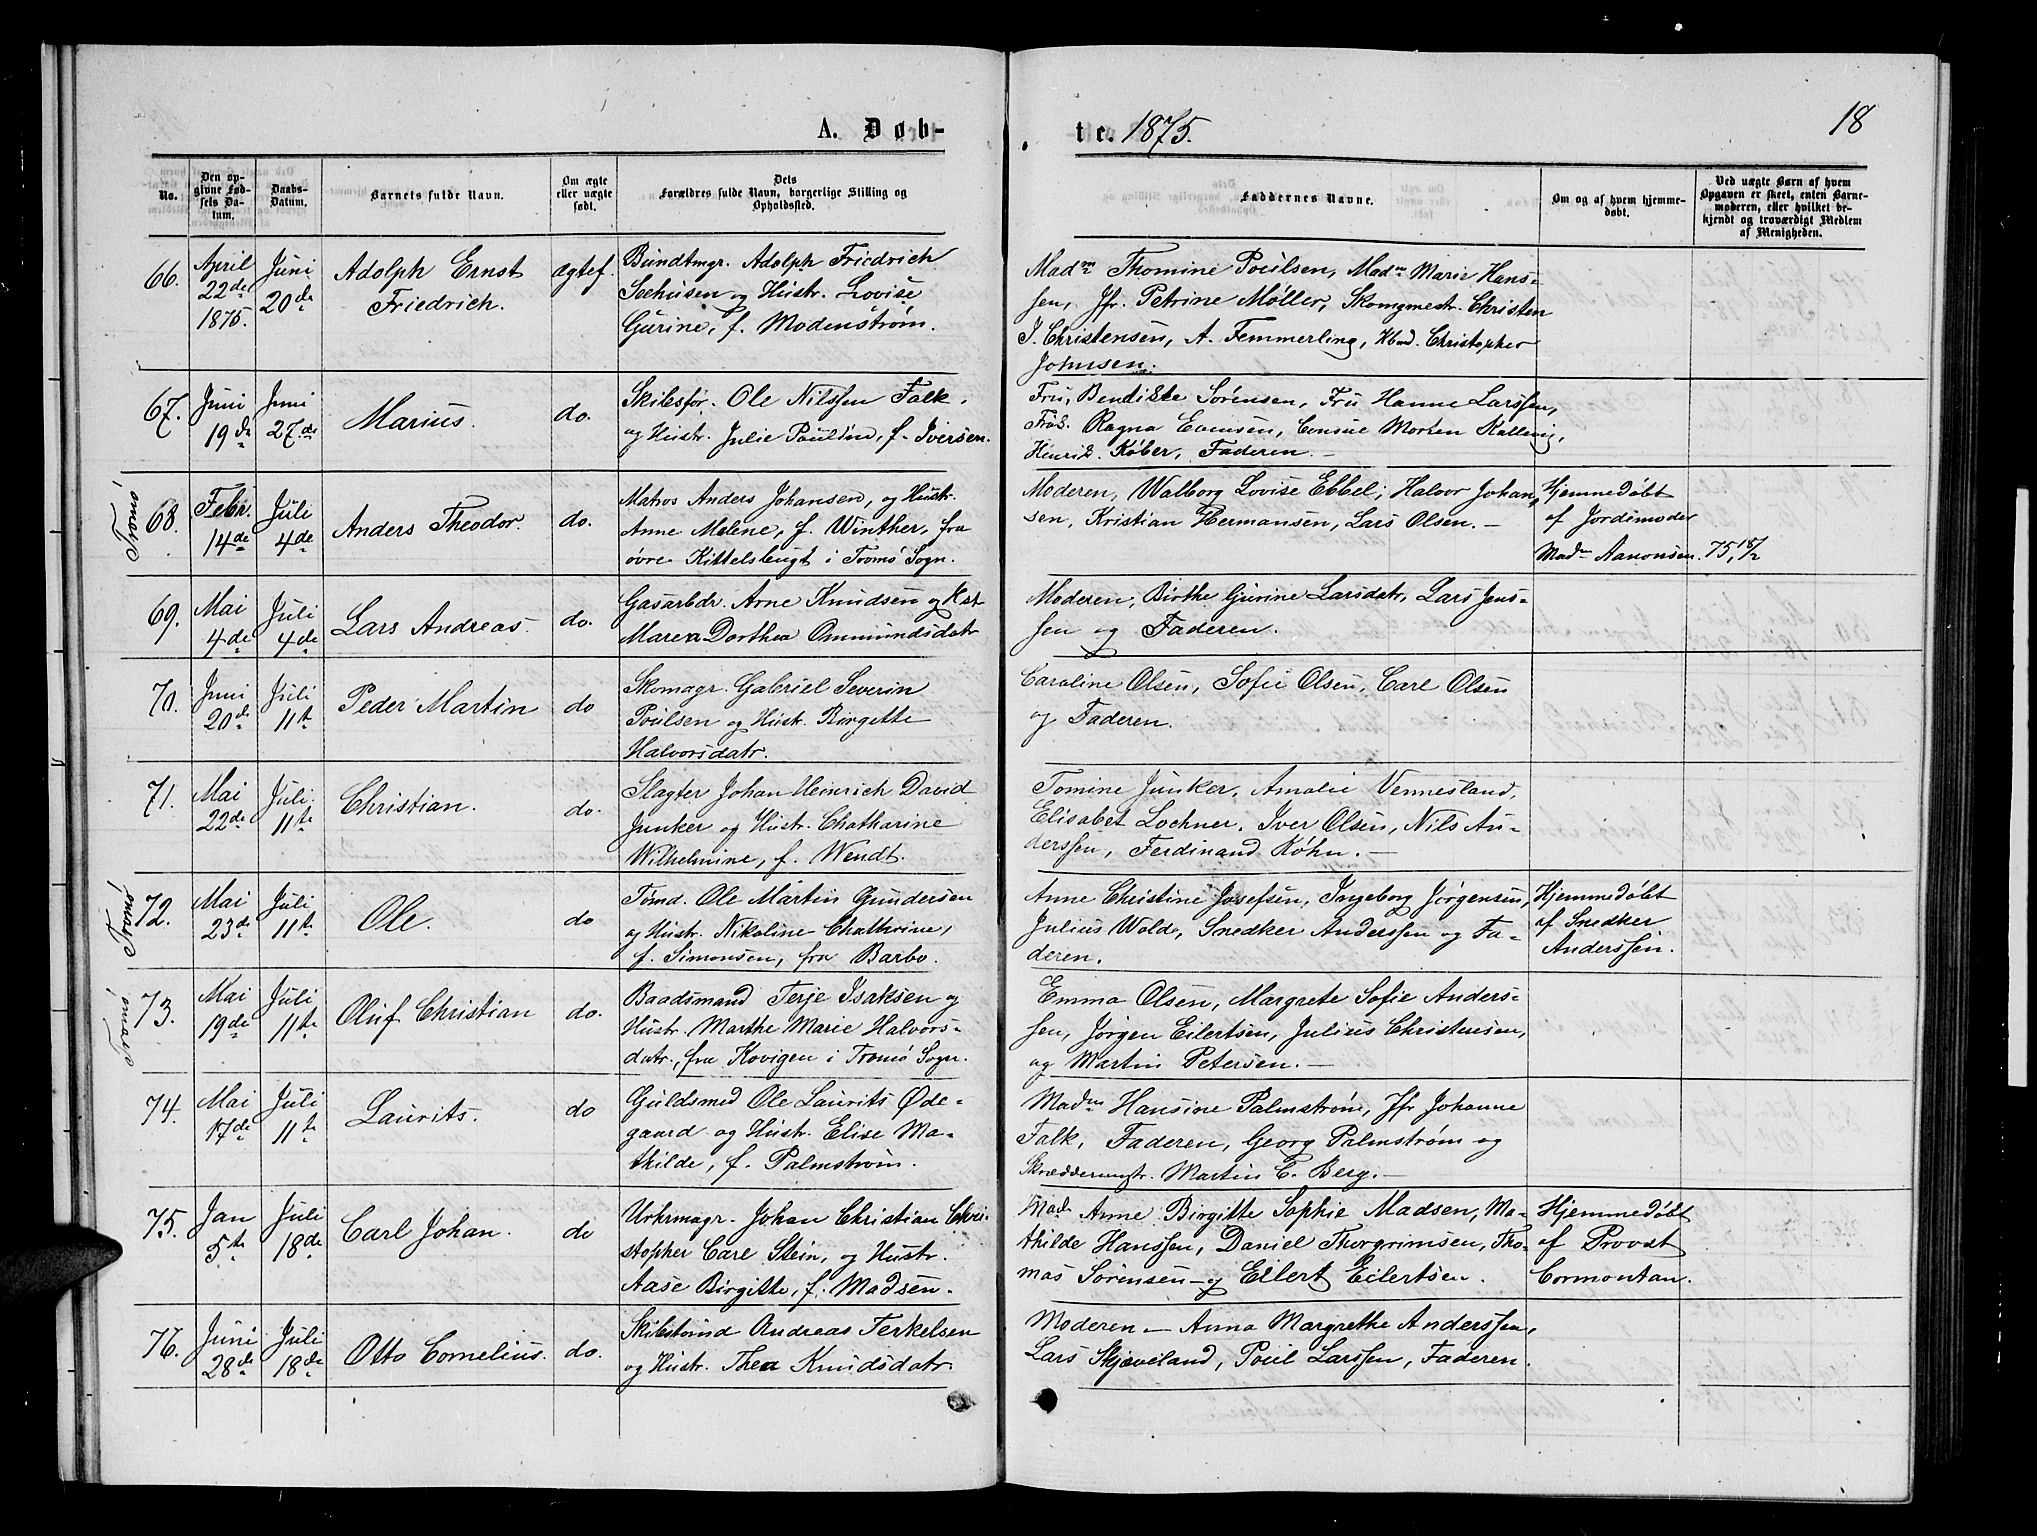 A. Døb-
te. 1875.
18
No.
Den op-
givne Fød-
sels Da-
tum.
Daabs-
Datum.
Barnets fulde Navn.
Om ægte
eller uægte
født.
Dets
Forældres fulde Navn, borgerlige Stilling og
Opholdssted.
Faddernes Navne.
Om og af hvem hjemme-
døbt.
Ved uægte Børn af hvem
Opgaven er skeet, enten Barne-
moderen, eller hvilket be-
kjendt og troværdigt Medlem
af Menigheden.
66.
April
22de
1875.
Juni
20de
Adolph Ernst
Friedrich.
ægtef.
Bundtmgr. Adolph Friedrich
Seehusen og Hustr. Lovise
Gurine, f. Modenstrøm.
Madm Thomine Poulsen, Madm Marie Hans-
sen, Jfr. Petrine Møller, Skomgmestr. Christen
J. Christensen, A. Femmerling, Hbmd. Christopher
Johnsen.
67.
Juni
19de
Juni
27.de
Marius.
do.
Skibsfør. Ole Nilssen Falk,
og Hustr. Julie Pouline, f. Iversen.
Fru, Bendikte Sørensen, Fru Hanne Larssen,
Frøk. Ragna Evensen, Consul Morten Kallevig,
Henrik Køber, Faderen.
Tromø,
68.
Febr.
14de
Juli
4de
Anders Theodor.
do.
Matros Anders Johansen, og Hustr.
Anne Malene, f. Winther, fra
øvre Kittelsbugt i Tromø Sogn.
Moderen, Walborg Lovise Ebbel, Halvor Johan-
sen, Kristian Hermansen, Lars Olsen. –
Hjemmedøbt
af Jordemoder
Madm Aanonsen. 75, 18/2
69.
Mai
4de
Juli
4de
Lars Andreas.
do.
Gasarbdr. Arne Knudsen og Hst
Maren Dorthea Ommundsdatr
Moderen, Birthe Gurine Larsdatr, Lars Jens-
sen og Faderen.
70.
Juni
20de
Juli
11te
Peder Martin
do
Skomagr. Gabriel Severin
Poulsen og Hustr. Birgette
Halvorsdatr.
Caroline Olsen, Sofie Olsen, Carl Olsen
og Faderen.
71.
Mai
22de
Juli
11te
Christian.
do.
Slagter Johan Heinrich David
Junker og Hustr. Chatharine
Wilhelmine, f. Wendt.
Tomine Junker, Amalie Vennesland,
Elisabet Lochner, Iver Olsen, Nils An-
derssen, Ferdinand Køhn. –
Tromø,
72.
Mai
23de
Juli
11te
Ole.
do
Tømd. Ole Martin Gundersen
og Hustr. Nikoline Chathrine,
f. Simonsen, fra Barbo.
Anne Christine Josefsen, Ingeborg Jørgensen,
Julius Wold, Snedker Anderssen og Fa-
deren.
Hjemmedøbt
af Snedker
Anderssen.
Tromø,
73.
Mai
19de
Juli
11te
Oluf Christian
do.
Baadsmand Terje Isaksen og
Hustr. Marthe Marie Halvors-
datr, fra Kovigen i Tromø Sogn.
Emma Olsen, Margrete Sofie Anders-
sen, Jørgen Eilertsen, Julius Christensen,
og Martin Petersen. –
74.
Mai
17de
Juli
11te
Laurits.
do
Guldsmed Ole Laurits Øde-
gaard og Hustr. Elise Ma-
thilde, f. Palmstrøm.
Madm Hansine Palmstrøm, Jfr Johanne
Falk, Faderen, Georg Palmstrøm og
Skræddermstr. Martin C. Berg. –
75.
Jan
5te
Juli
18de
Carl Johan.
do
Urhrmagr. Johan Christian Chri-
stopher Carl Stein, og Hustr.
Aase Birgitte, f. Madsen.
Mad. Anne Birgitte Sophie Madsen, Ma-
thilde Hanssen, Daniel Thorgrimsen, Tho-
mas Sørensen og Eilert Eilertsen.
Hjemmedøbt
af Provst
Cormontan.
76.
Juni
28de
Juli
18de
Otto Cornelius.
do.
Skibstømd Andreas Terkelsen
og Hustr. Thea Knudsdatr.
Moderen – Anna Margrethe Anderssen,
Lars Skjæveland, Poul Larssen, Faderen.